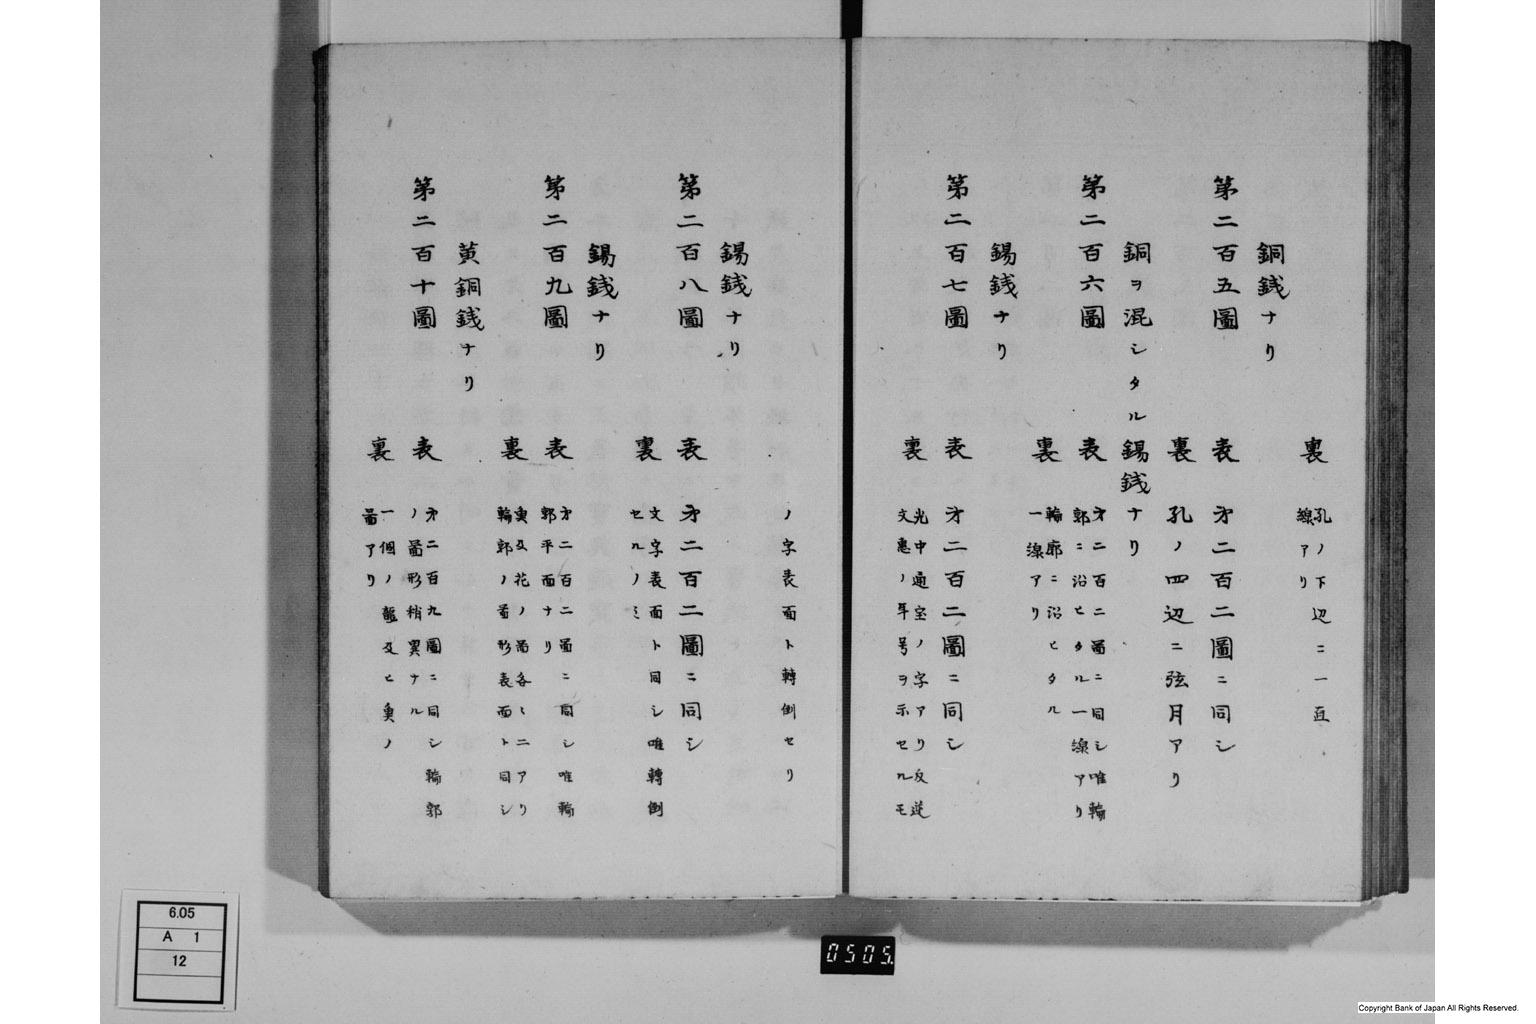 裏 孔ノ下辺ニ一直
線アリ
銅銭ナリ
第二百五圖 表 才二百二圖ニ同シ
裏 孔ノ四辺ニ弦月アリ
銅ヲ混シタル錫銭ナリ
第二百六圖 表 才二百二圖ニ同シ唯輪
郭ニ沿ヒタル一線アリ
裏 輪廓ニ沿ヒタル
一線アリ
錫銭ナリ
第二百七圖 表 才二百二圖ニ同シ
裏 光中通宝ノ字アリ反逆
文惠ノ年号ヲ示セルモ
ノ字表面ト轉倒セリ
錫銭ナリ
第二百八圖 表 才二百二圖ニ同シ
裏 文字表面ト同シ唯轉倒
セルノミ
錫銭ナリ
第二百九圖 表 才二百二圖ニ同シ唯輪
郭平面ナリ
裏 魚及花ノ圖各〻二アリ
輪郭ノ圖形表面ト同シ
黄銅銭ナリ
第二百十圖 表 才二百九圖ニ同シ輪郭
ノ圖形稍異ナル
裏 一個ノ龍及ヒ魚ノ
圖アリ
6.05
A 1
12
0505.
Copyright Bank of Japan All Rights Reserved.